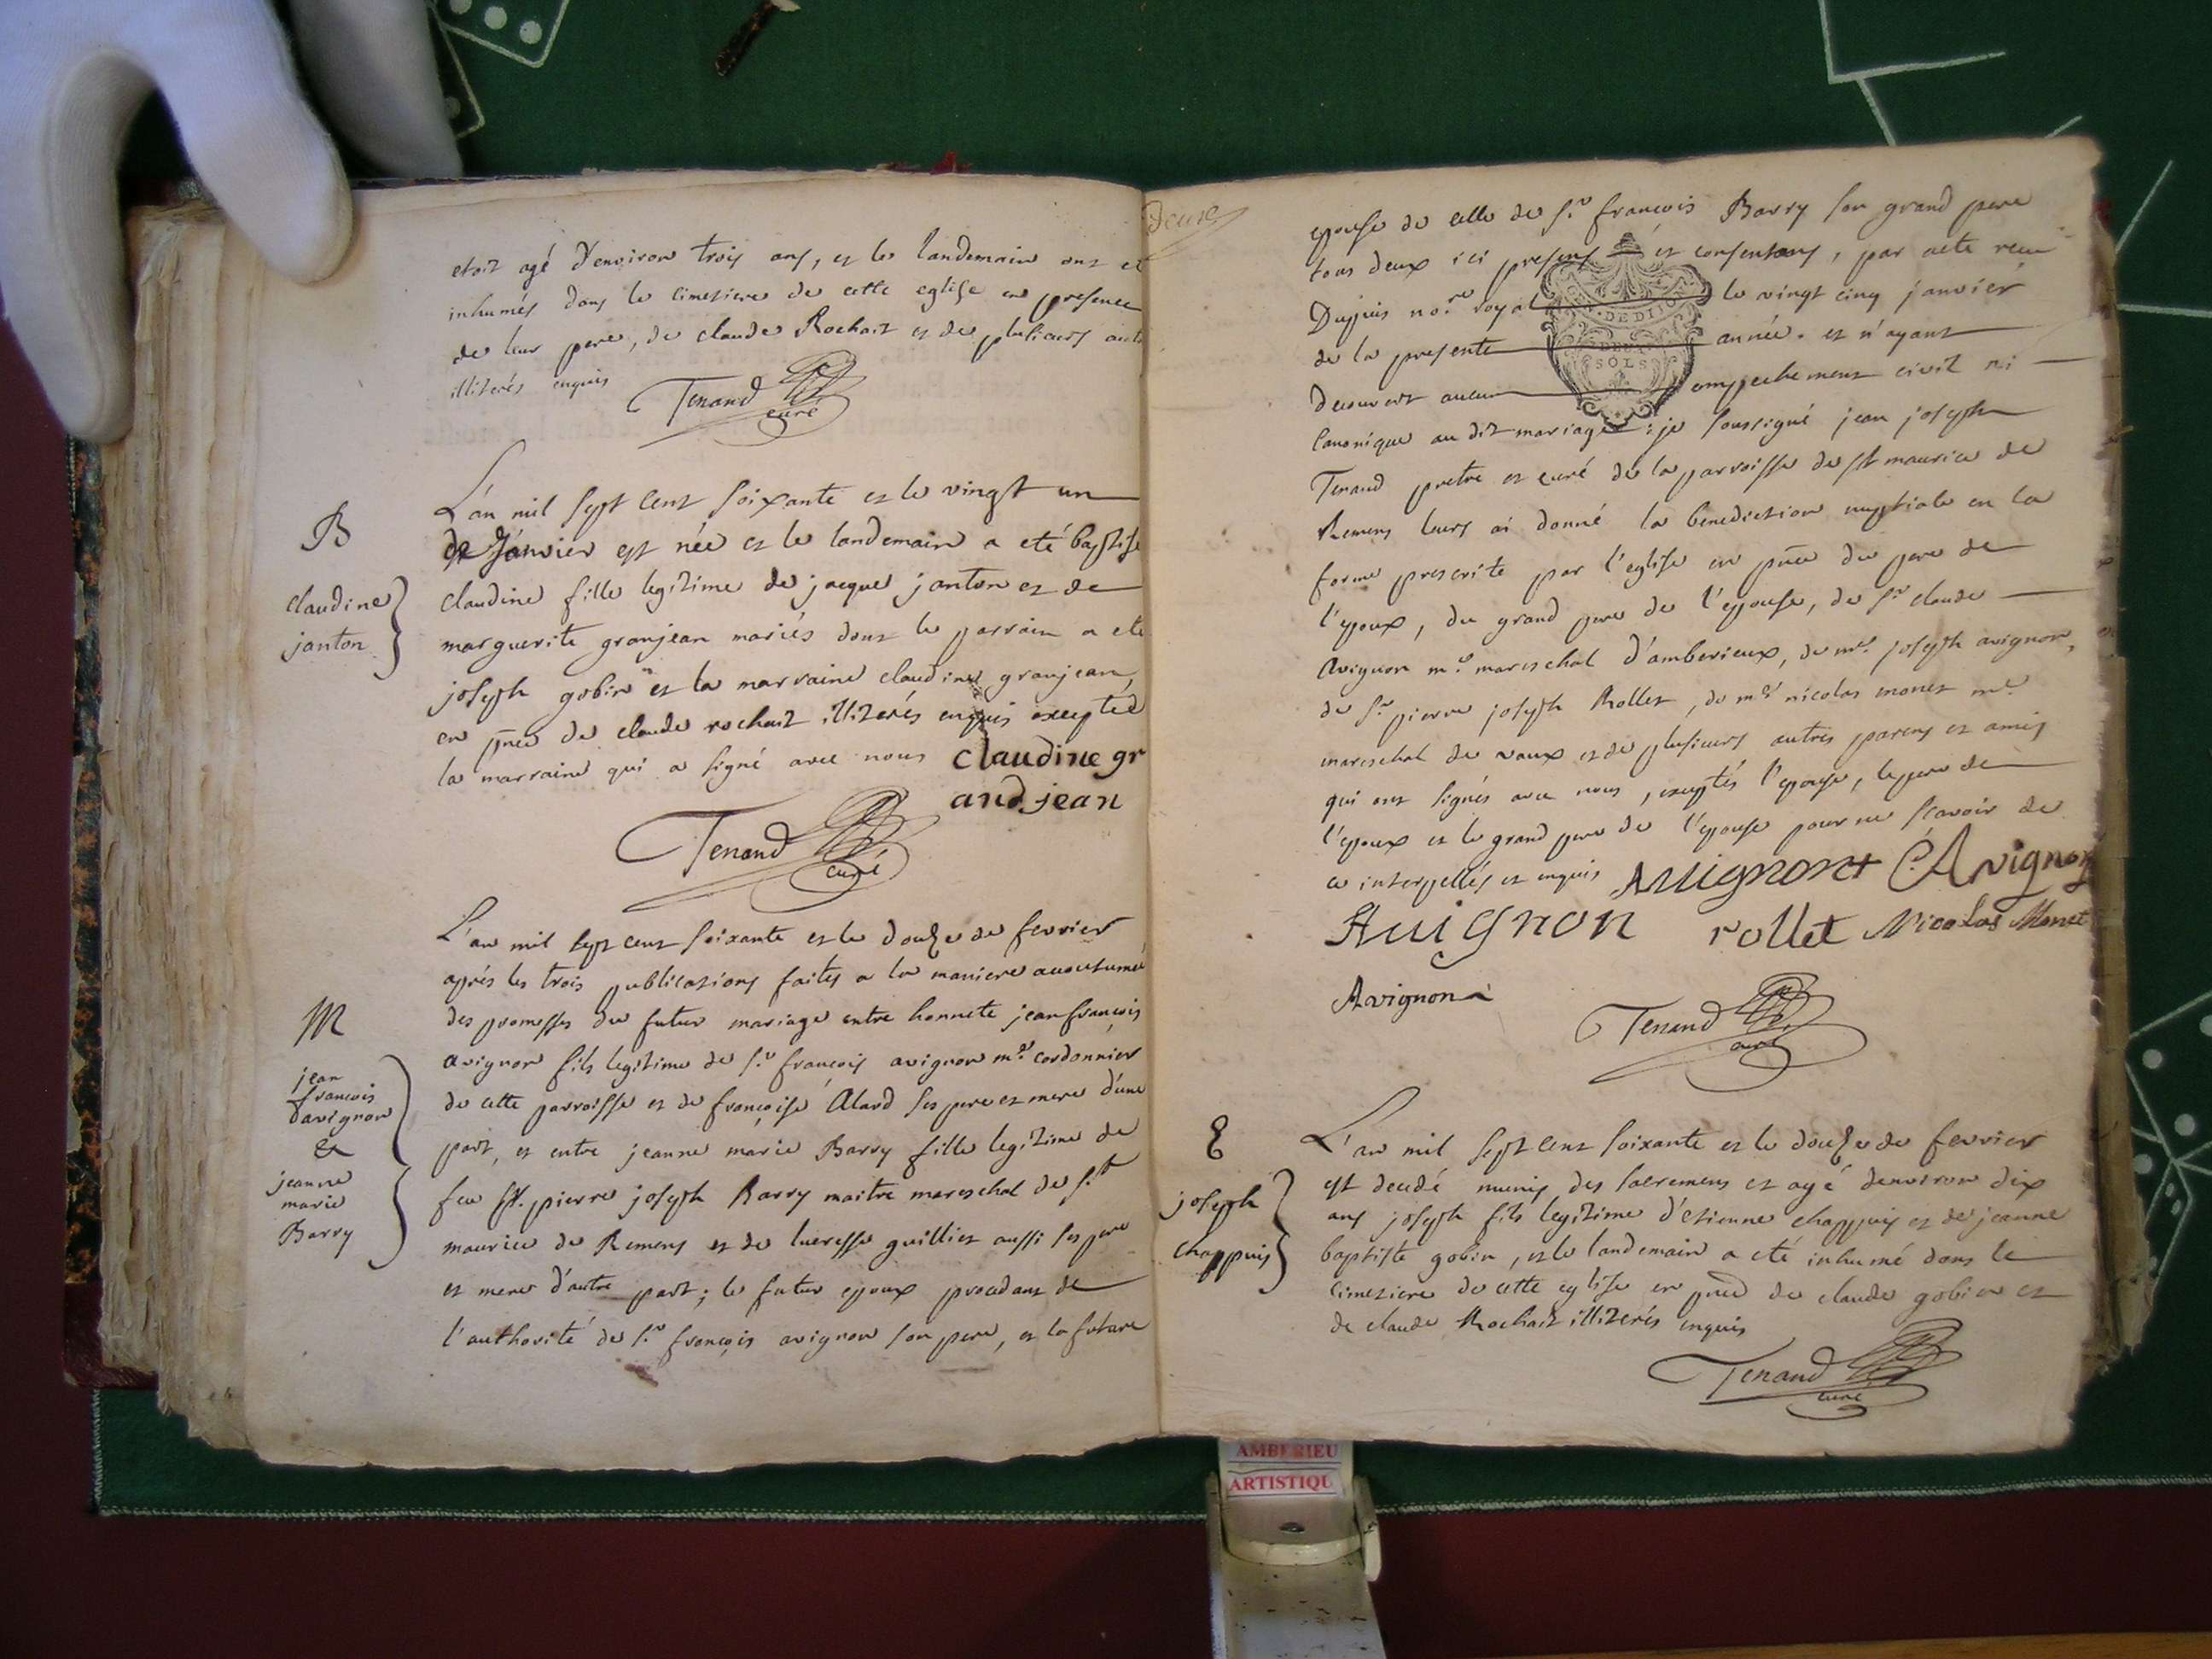 etoit agé d'environ trois ans, et le landemain ont et
inhumés dans le cimetiere de cette eglise en presence
de leur pere, de claude Rochait et de plusieurs autr
illiterés enquis
Tenand
curé
B
claudine
janton
L'an mil sept cent soixante et le vingt un
de Janvier est née et le landemain a eté baptise
claudine fille legitime de jacque janton et de
marguerite granjean mariés dont le parrain a eté
joseph gobin et la marraine claudine granjean,
en pnce de claude rochait illiterés enquis exceptéé
la marraine qui a signé avec nous claudine gr
and jean
Tenand
curé
M
jean
francois
davignon
&
jeanne
marie
Barry
L'an mil sept cent soixante et le douze de fevrier
aprés les trois publications faites a la maniere accoutumée
des promesses du futur mariage entre honnete jean françois
avignon fils legitime de sr françois avignon me cordonnier
de cette parroisse et de françoise Alard ses pere et mere d'une
part, et entre jeanne marie Barry fille legitime de
feu Sr. pierre joseph Barry maitre mareschal de St
maurice de Remens et de lucresse guillier aussi ses pere
et mere d'autre part; le futur epoux procedant de
l'authorité de sr françois avignon son pere, et la future
epouse de celle de sr francois Barry son grand pere
tous deux ici presens et consentans, par acte recu
Dupuis nore royal le vingt cinq janvier
de la presente année. et n'ayant
decouvert aucun empechement civil ni
canonique au dit mariage: je soussigné jean joseph
Tenand pretre et curé de la parroisse de St maurice de
Remens leurs ai donné la benediction nuptiale en la
forme prescrite par l'eglise en pnce du pere de
l'epoux, du grand pere de l'epouse, de sr claude
avignon me mareschal d'amberieux, de me joseph avignon,
de sr pierre joseph Rollet, de me nicolas monet me
mareschal de vaux et de plusieurs autres parens et amis
qui ont signés avec nous, exceptés l'epouse, le pere de
l'epoux et le grand pere de l'epouse pour ne scavoir de
ce interpellés et enquis Avignont C Avignon
Avignon rollet Nicolas Monet
Avignon
Tenand
curé
DE DIJON
DEUX
SOLS
E
joseph
chappuis
L'an mil sept cent soixante et le douze de fevrier
est decedé munis des sacremens et agé denviron dix
ans joseph fils legitime d'etienne chappuis et de jeanne
baptiste gobin, et le landemain a eté inhumé dans le
cimetiere de cette eglise en pnce de claude gobin et
de claude Rochait illiterés enquis
Tenand
curé
AMBERIEU
ARTISTIQU